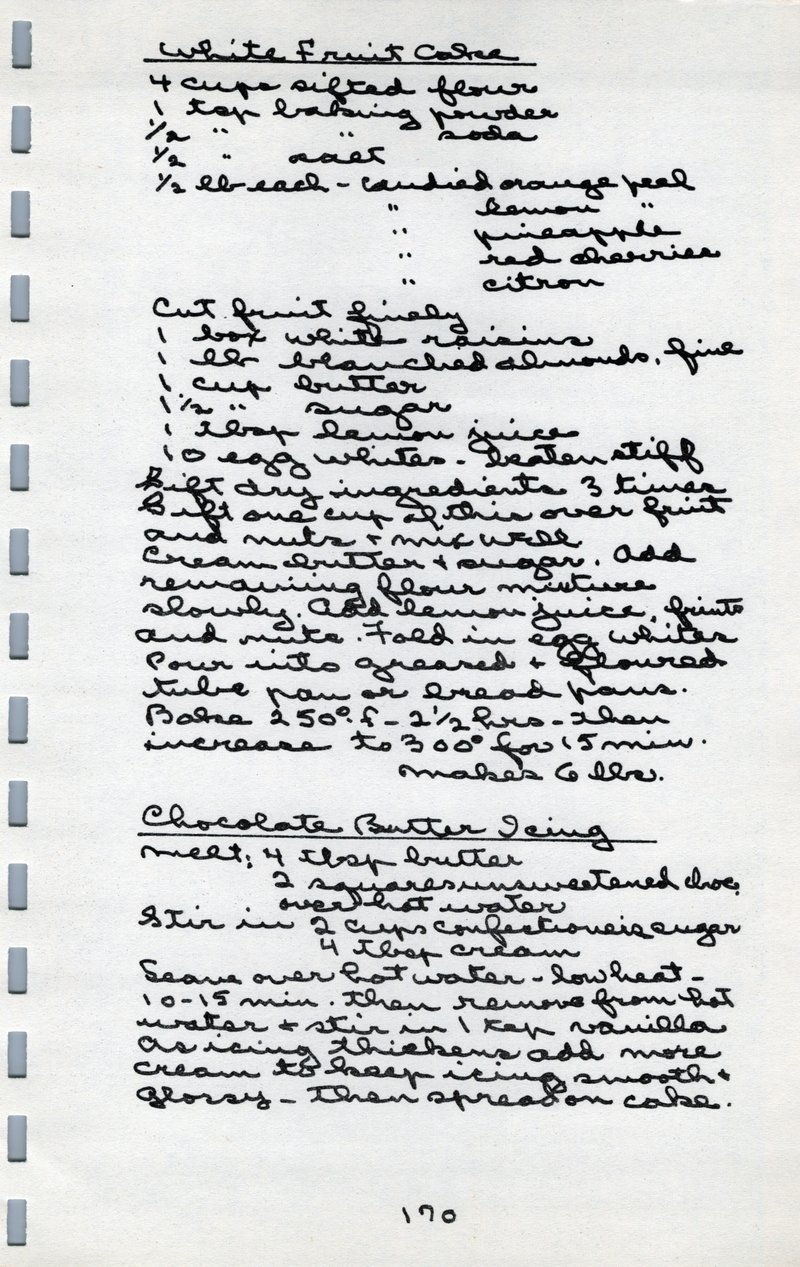 White Fruit Cake
4 cups sifted flour
1 tsp baking powder
1/2 " " soda
1/2 " salt
1/2 lb each - candied orange peel
" lemon "
" pineapple
" red cherries
" citron
Cut fruit finely
1 box white raisins
1 lb blanched almonds, fine
1 cup butter
1 1/2 " sugar
1 tbsp lemon juice
10 egg whites - beaten stiff
Sift dry ingredients 3 times
Sift one cup of this over fruit
and nuts + mix well
Cream butter + sugar. Add
remaining flour mixture
slowly. Add lemon juice, fruits
and nuts. Fold in egg whites
Pour into greased + floured
tube pan or bread pans.
Bake 250° f - 2 1/2 hrs - then
increase to 300° for 15 min.
Makes 6 lbs.
Chocolate Butter Icing
Melt: 4 tbsp butter
2 squares unsweetened choc.
over hot water
Stir in 2 cups confectioners sugar
4 tbsp cream
Leave over hot water - low heat -
10-15 min. Then remove from hot
water + stir in 1 tsp vanilla
As icing thickens add more
cream to keep icing smooth +
glossy - then spread on cake.
170